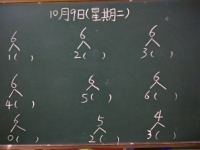 10月9日(星期二)
6 6 6
1( ) 2( ) 3( )
6 6 6
4( ) 5( ) 6( )
6 5 4
0( ) 2( ) 3( )